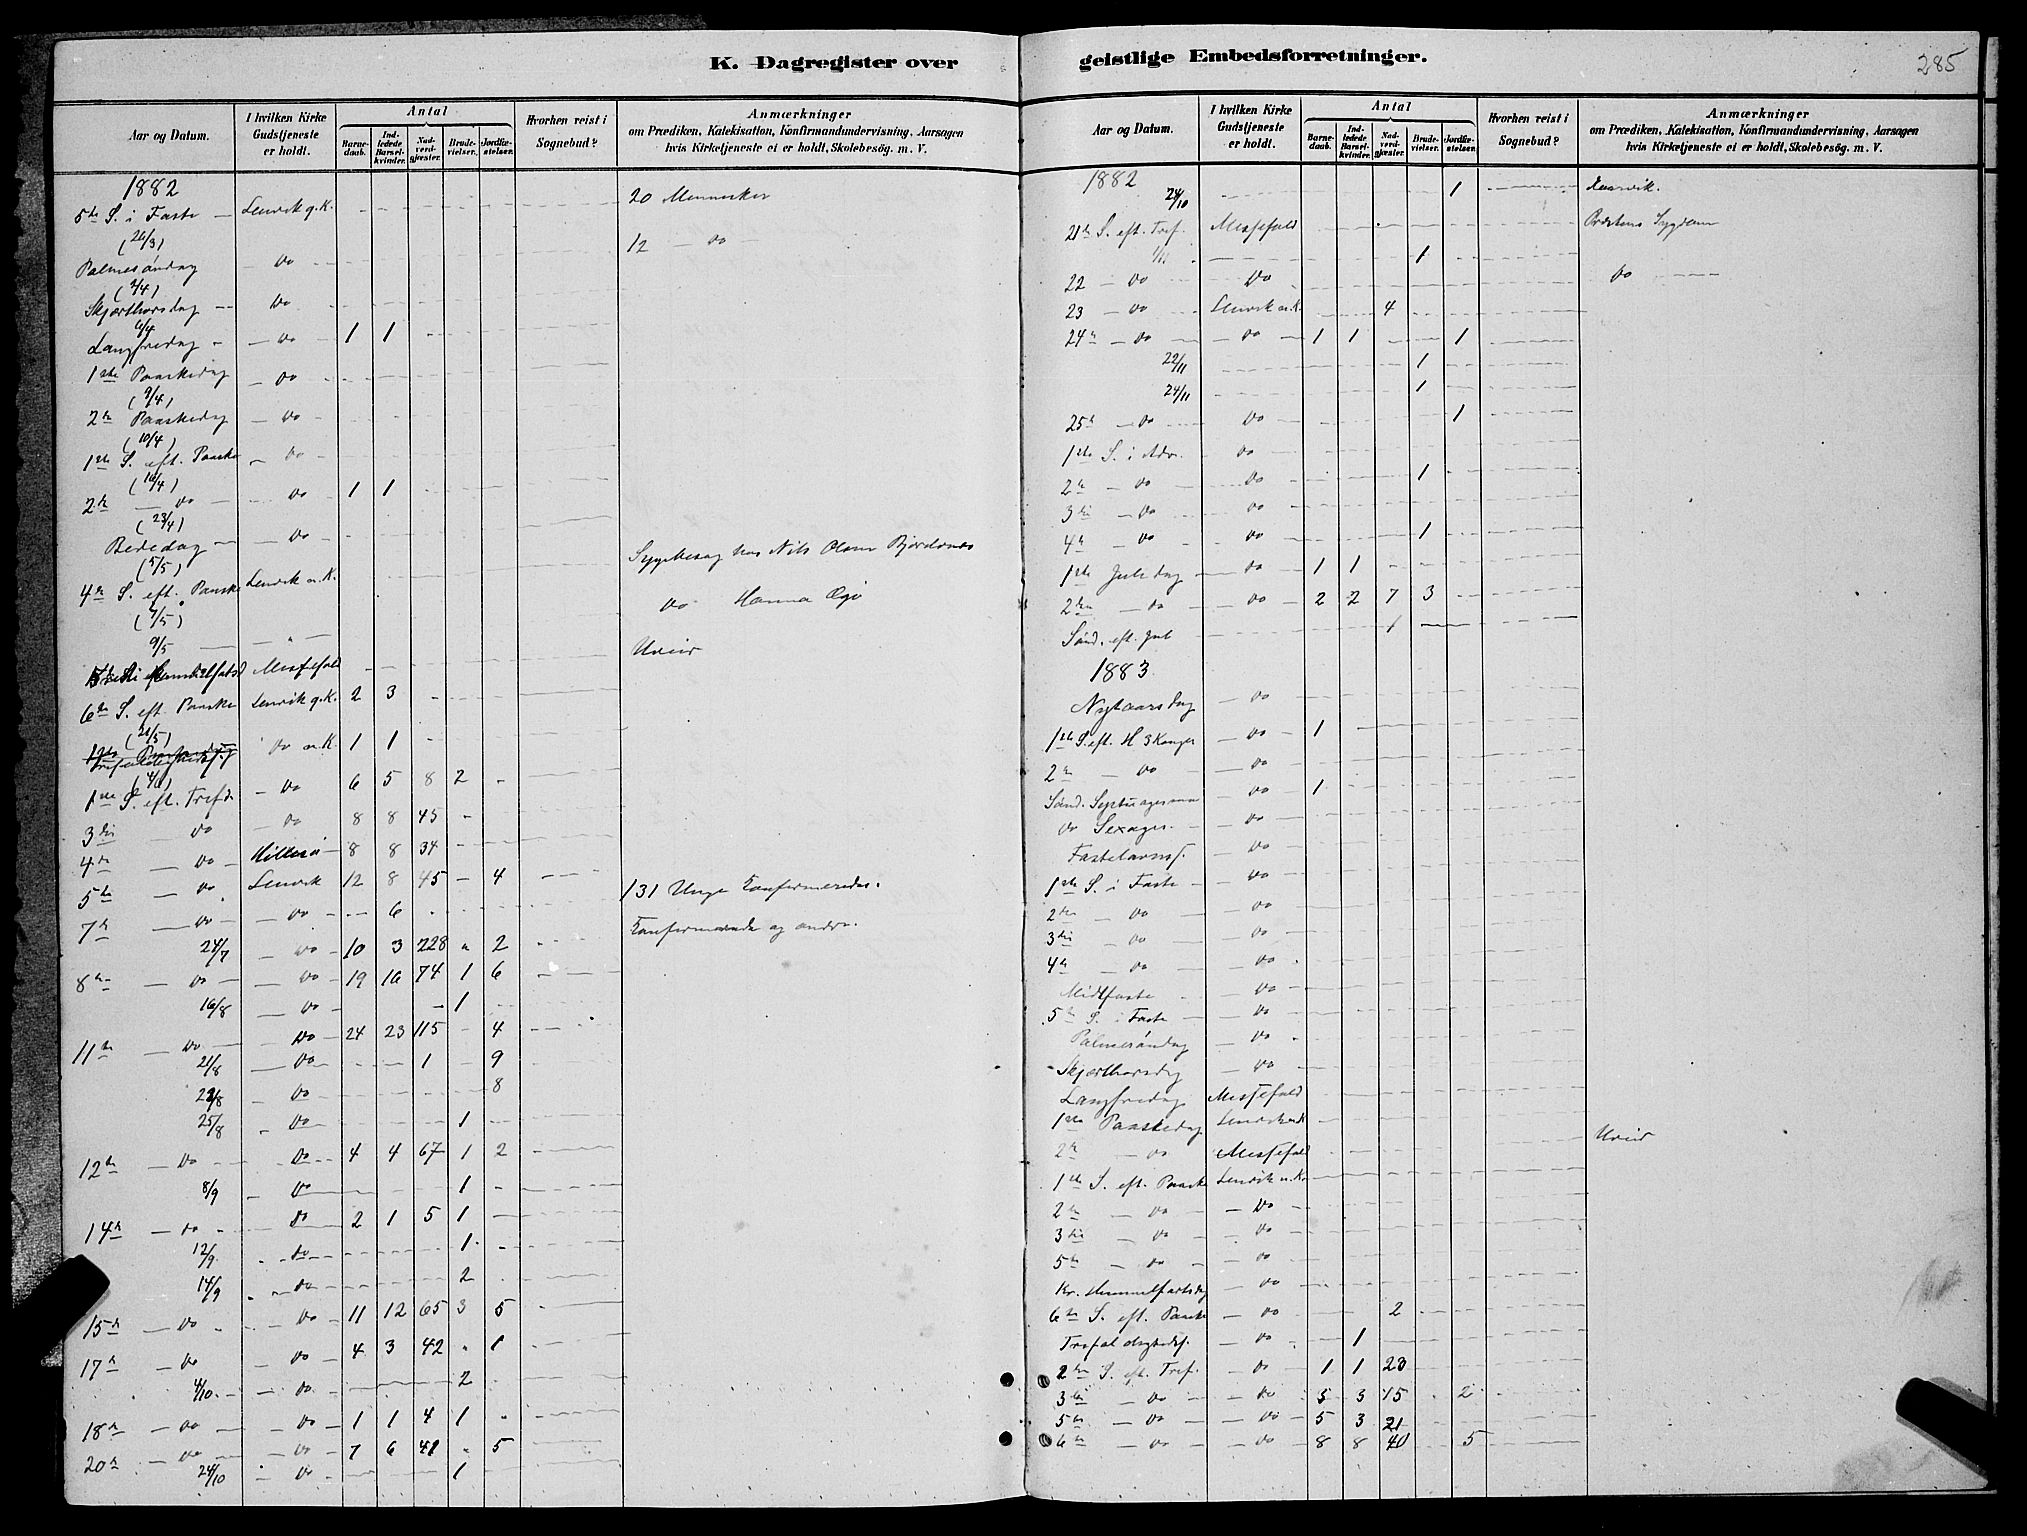 K. Dagregister over
Aar og Datum.
I hvilken Kirke Gudstjeneste er holdt.
Antal
Barnedaab.
Indledede Barselkvinder.
Nadverdgjæster.
Brudevielser.
Jordfæstelser.
Hvorhen reist i Sognebud?
Anmærkninger
om Prædiken, Katekisation, Konfirmandundervisning, Aarsagen
hvis Kirketjeneste ei er holdt, Skolebesøg. m. V.
1882
5te S. i Faste Lenvik g. K. 20 Mennesker
(26/3)
Palmesöndag do 12 do
(2/4)
Skjærthorsdag do
6/4
Langfredag do 1 1
1ste Paaskedag do
(9/4)
2den Paaskedag do
(10/4)
1ste S. eft. Paaske do
(16/4)
2den do do 1 1
(23/4)
Bededag do
(5/5) Sygebesøg hos Nils Olsen
4de S. eft. Paaske Lenvik n. K.
(7/5) do Hanna
9/5 "
Messefald Uveir
6te S. eft. Paaske Lenvik g. K. 2 3
(21/5)
do n. K. 1 1
(4/6)
1ste S. eft. Tref. do 6 5 8 2
3die do do 8 8 45
4de do Hillesö 8 8 34
5te do Lenvik 12 8 45 4
7de do do 6 131 Unge Konfirmeredes.
24/7 do 10 3 228 " 2 Konfirmerede og andre.
8de do do 19 16 74 1 6
16/8 do 1
11te do do 24 23 115 4
21/8 do 1 9
22/8 do 8
25/8 do 1
12te do do 4 4 67 1 2
8/9 do 1
14de do do 2 1 5 1
12/9 do 1
14/9 do 2
15de do do 11 12 65 3 5
17de do do 4 3 42 " 1
4/10 do 2
18de do do 1 1 4 1
20de do do 7 6 41 " 5
24/10 do 1
geistlige Embedsforretninger.
285
Aar og Datum.
I hvilken Kirke Gudstjeneste er holdt.
Antal
Barnedaab.
Indledede Barselkvinder.
Nadverdgjæster.
Brudevielser.
Jordfæstelser.
Hvorhen reist i Sognebud?
Anmærkninger
om Prædiken, Katekisation, Konfirmandundervisning, Aarsagen
hvis Kirketjeneste ei er holdt, Skolebesøg. m. V.
1882
1
21de S. eft. Tref. Messefald Præstens Sygdom
1/11 1
22 do do do
23 do Lenvik n. K. 4
24de do do 1 1 1
22/11 1
24/11 1
25de do do 1
1ste S. i Adv. do
2den do do 1
3die do do
4de do do 1
1ste Juledag do 1 1
2den do do 2 2 7 3
Sönd. eft. Jul 1
1883
Nytaarsdag do
1ste S. eft. H 3 Konger do 1
2den do do
Sönd. Septuagesima do 1
do Sexages. do
Fastelavnss. do
1ste S. i Faste do
2den do do
3die do do
4de do do
Midtfaste do
5te S. i Faste do
Palmesöndag do
Skjærthorsdag do
Langfredag Messefald
1ste Paaskedag Lenvik n. K.
2den do Messefald Uveir
1ste S. eft. Paaske Lenvik n. K.
2den do do
3die do do
5te do do
Kr. Himmelfartsdag do
6te S. eft. Paaske do 2
do 1
2den S. eft. Tref. do 1 1 23
3die do do 5 3 15 2
5te do do 5 3 21
6te do do 8 8 40 5